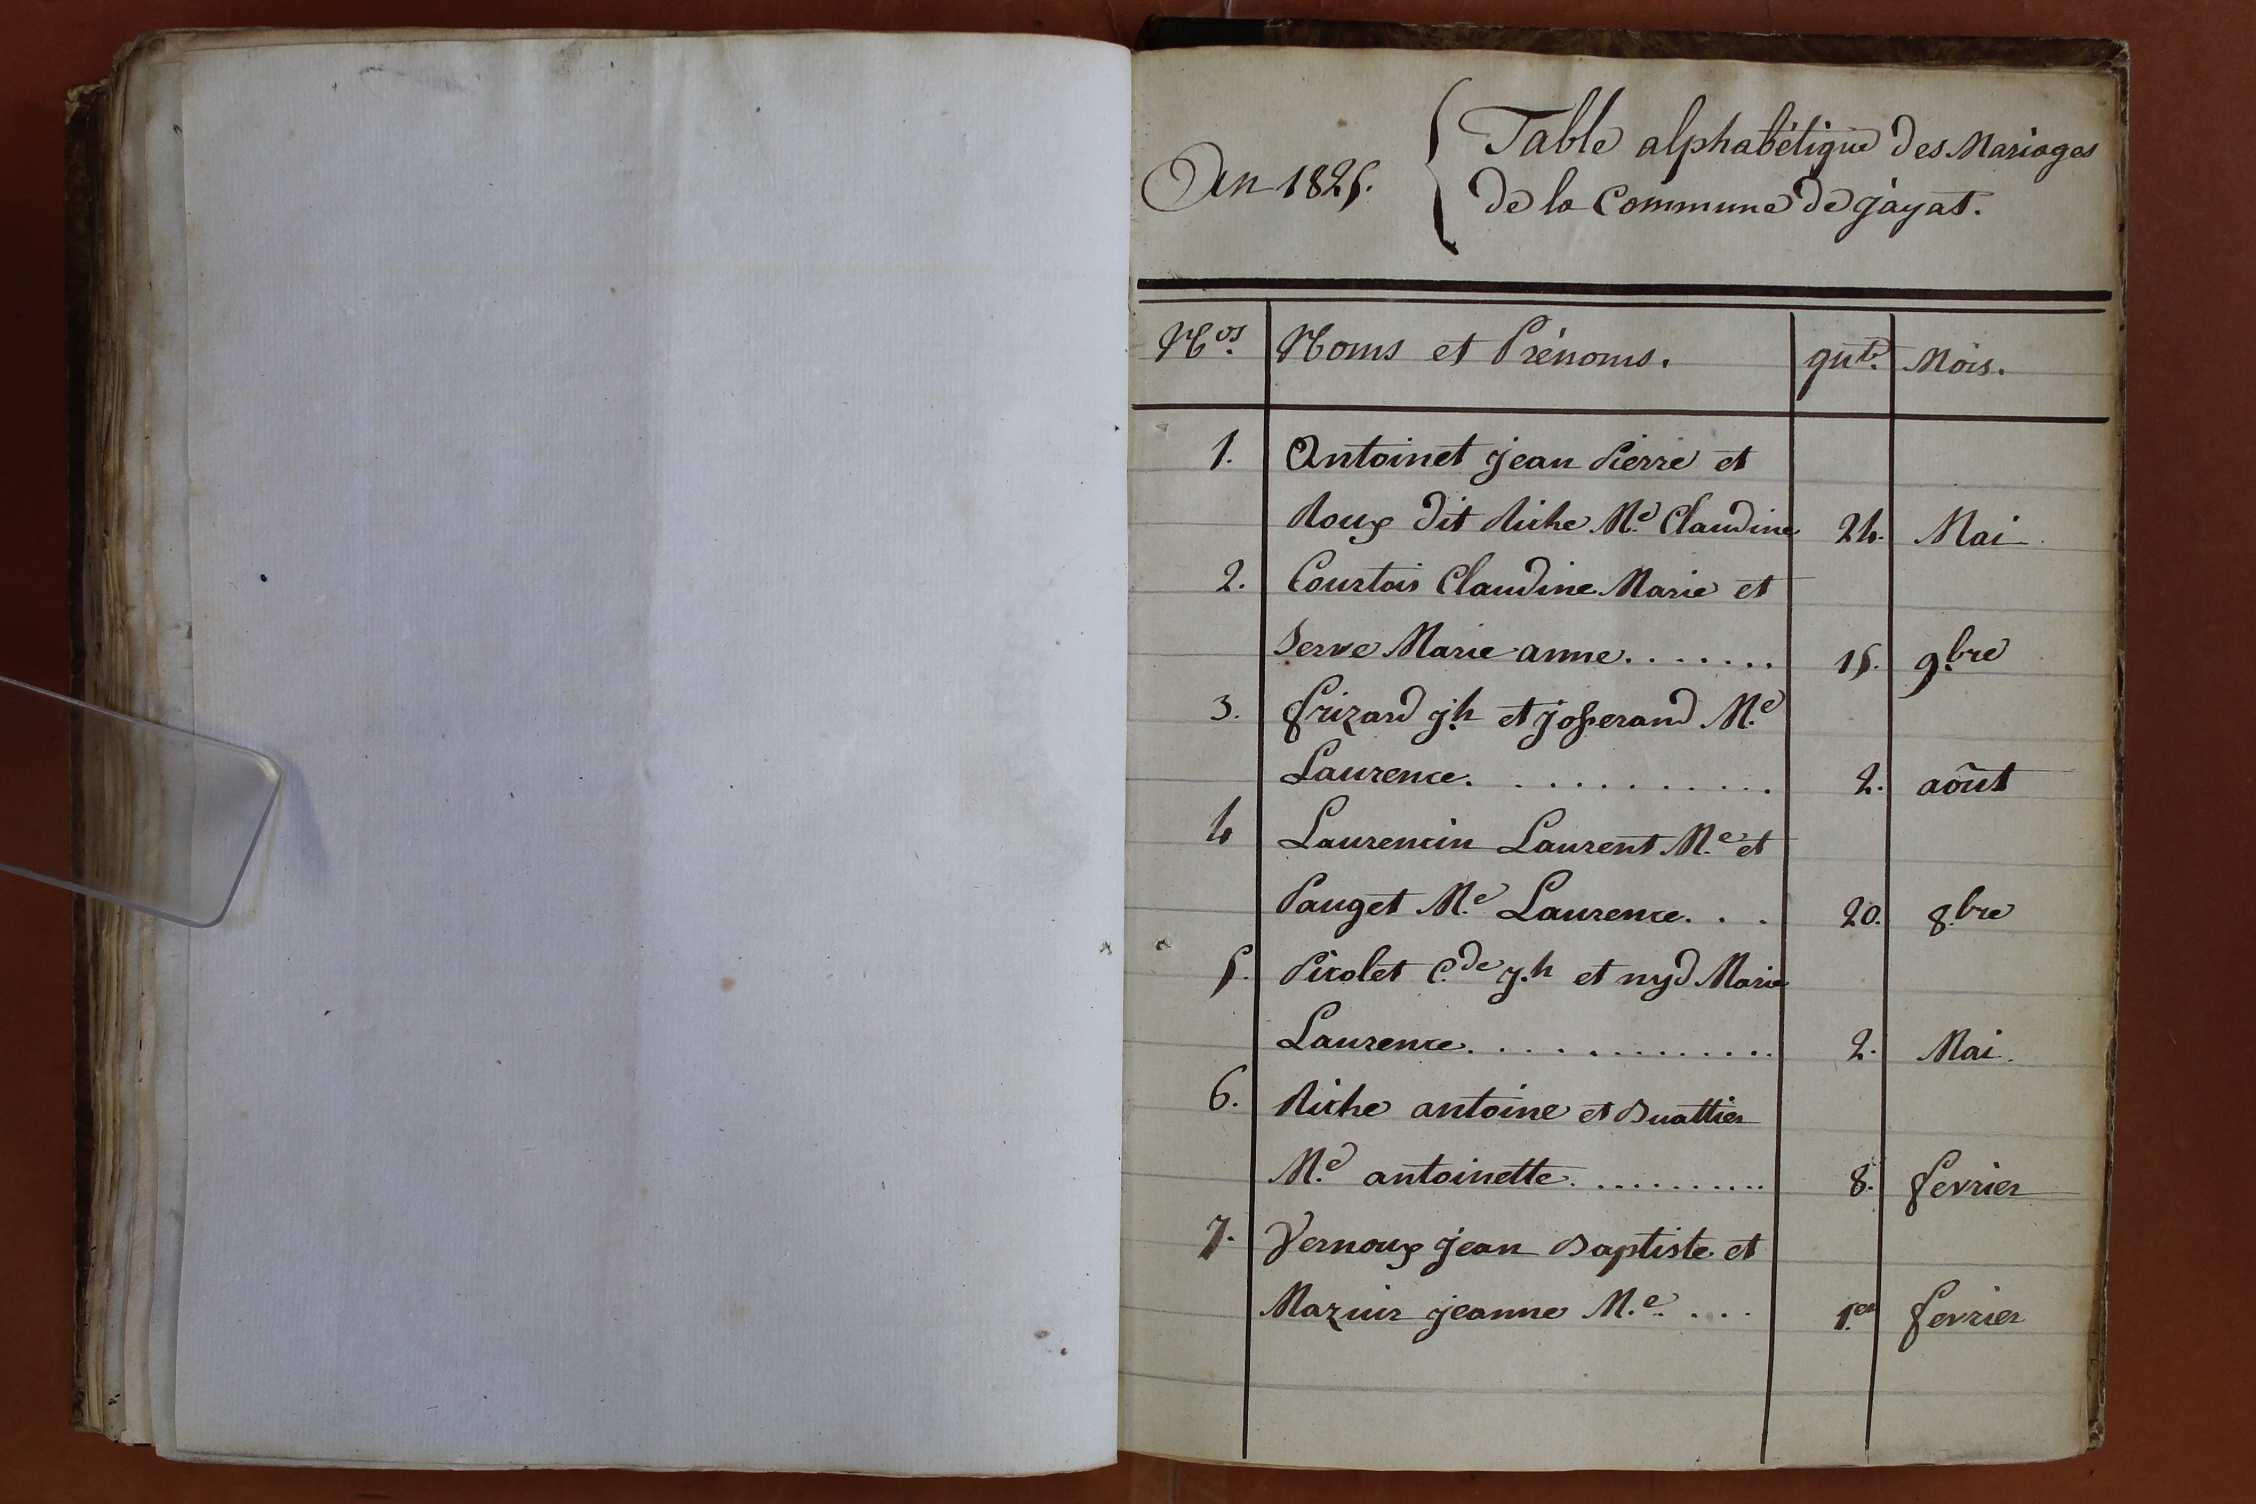 An 1825.
Table alphabétique des Mariages
de la Commune de jayat.
Nos. Noms et Prénoms. qnte. Mois.
1. Antoinet jean Pierre et
Roux dit Riche Me. Claudine 24. Mai
2. Courtois Claudine Marie et
Serve Marie anne....... 15. 9bre
3. frizard jh et josserand Me.
Laurence............ 2. août
4 Laurencin Laurent Me. et
Pauget Me. Laurence... 20. 8bre
5. Picolet Cde jh et nyd Marie
Laurence............. 2. Mai.
6. Riche antoine et Buattier
Me. antoinette.......... 8. fevrier
7. Vernoux jean Baptiste et
Mazuir jeanne Me.... 1er fevrier